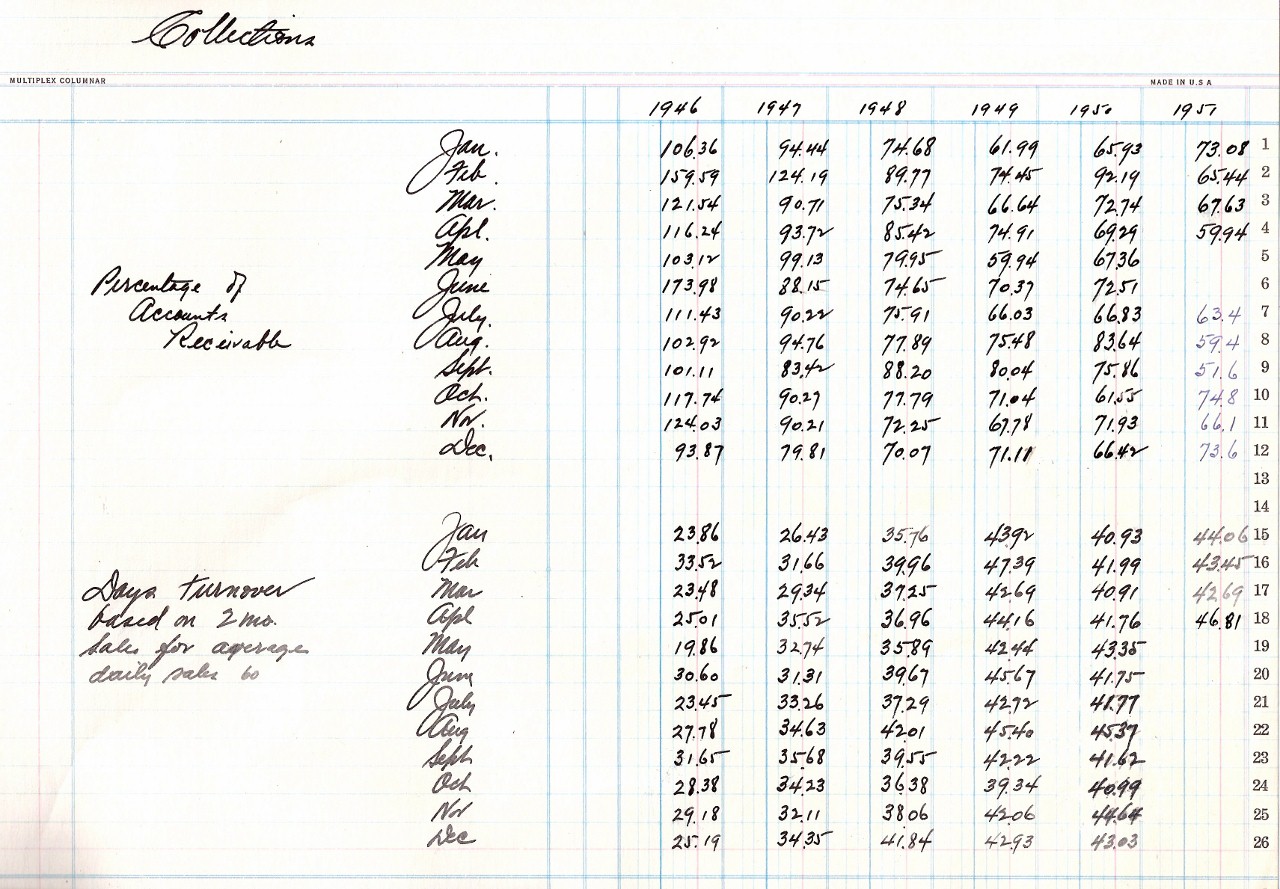 Collections
MULTIPLEX COLUMNAR MADE IN U.S.A
1946 1947 1948 1949 1950 1951
Jan. 106.36 94.44 74.68 61.99 65.93 73.08 1
Feb. 159.59 124.19 89.77 74.45 92.19 65.44 2
Mar. 121.54 90.71 75.34 66.64 72.74 67.63 3
Apl. 116.24 93.72 85.42 74.91 69.29 59.94 4
May 103.12 99.13 79.95 59.94 67.36 5
Percentage of June 173.98 88.15 74.65 70.37 72.51 6
Accounts July. 111.43 90.22 75.91 66.03 66.83 63.4 7
Receivable Aug. 102.92 94.76 77.89 75.48 83.64 59.4 8
Sept. 101.11 83.42 88.20 80.04 75.86 51.6 9
Oct. 117.74 90.27 77.79 71.04 61.55 74.8 10
Nov. 124.03 90.21 72.25 67.78 71.93 66.1 11
Dec. 93.87 79.81 70.07 71.11 66.42 73.6 12
13
14
Jan 23.86 26.43 35.76 43.92 40.93 44.06 15
Feb 33.52 31.66 39.96 47.39 41.99 43.45 16
Days turnover Mar 23.48 29.34 37.25 42.69 40.91 42.69 17
based on 2 mo. Apl 25.01 35.52 36.96 44.16 41.76 46.81 18
sales for average May 19.86 32.74 35.89 42.44 43.35 19
daily sales 60 June 30.60 31.31 39.67 45.67 41.75 20
July 23.45 33.26 37.29 42.72 41.77 21
Aug 27.78 34.63 42.01 45.40 45.37 22
Sept 31.65 35.68 39.55 42.22 41.62 23
Oct 28.38 34.23 36.38 39.34 40.99 24
Nov 29.18 32.11 38.06 42.06 44.64 25
Dec 25.19 34.35 41.84 42.93 43.03 26